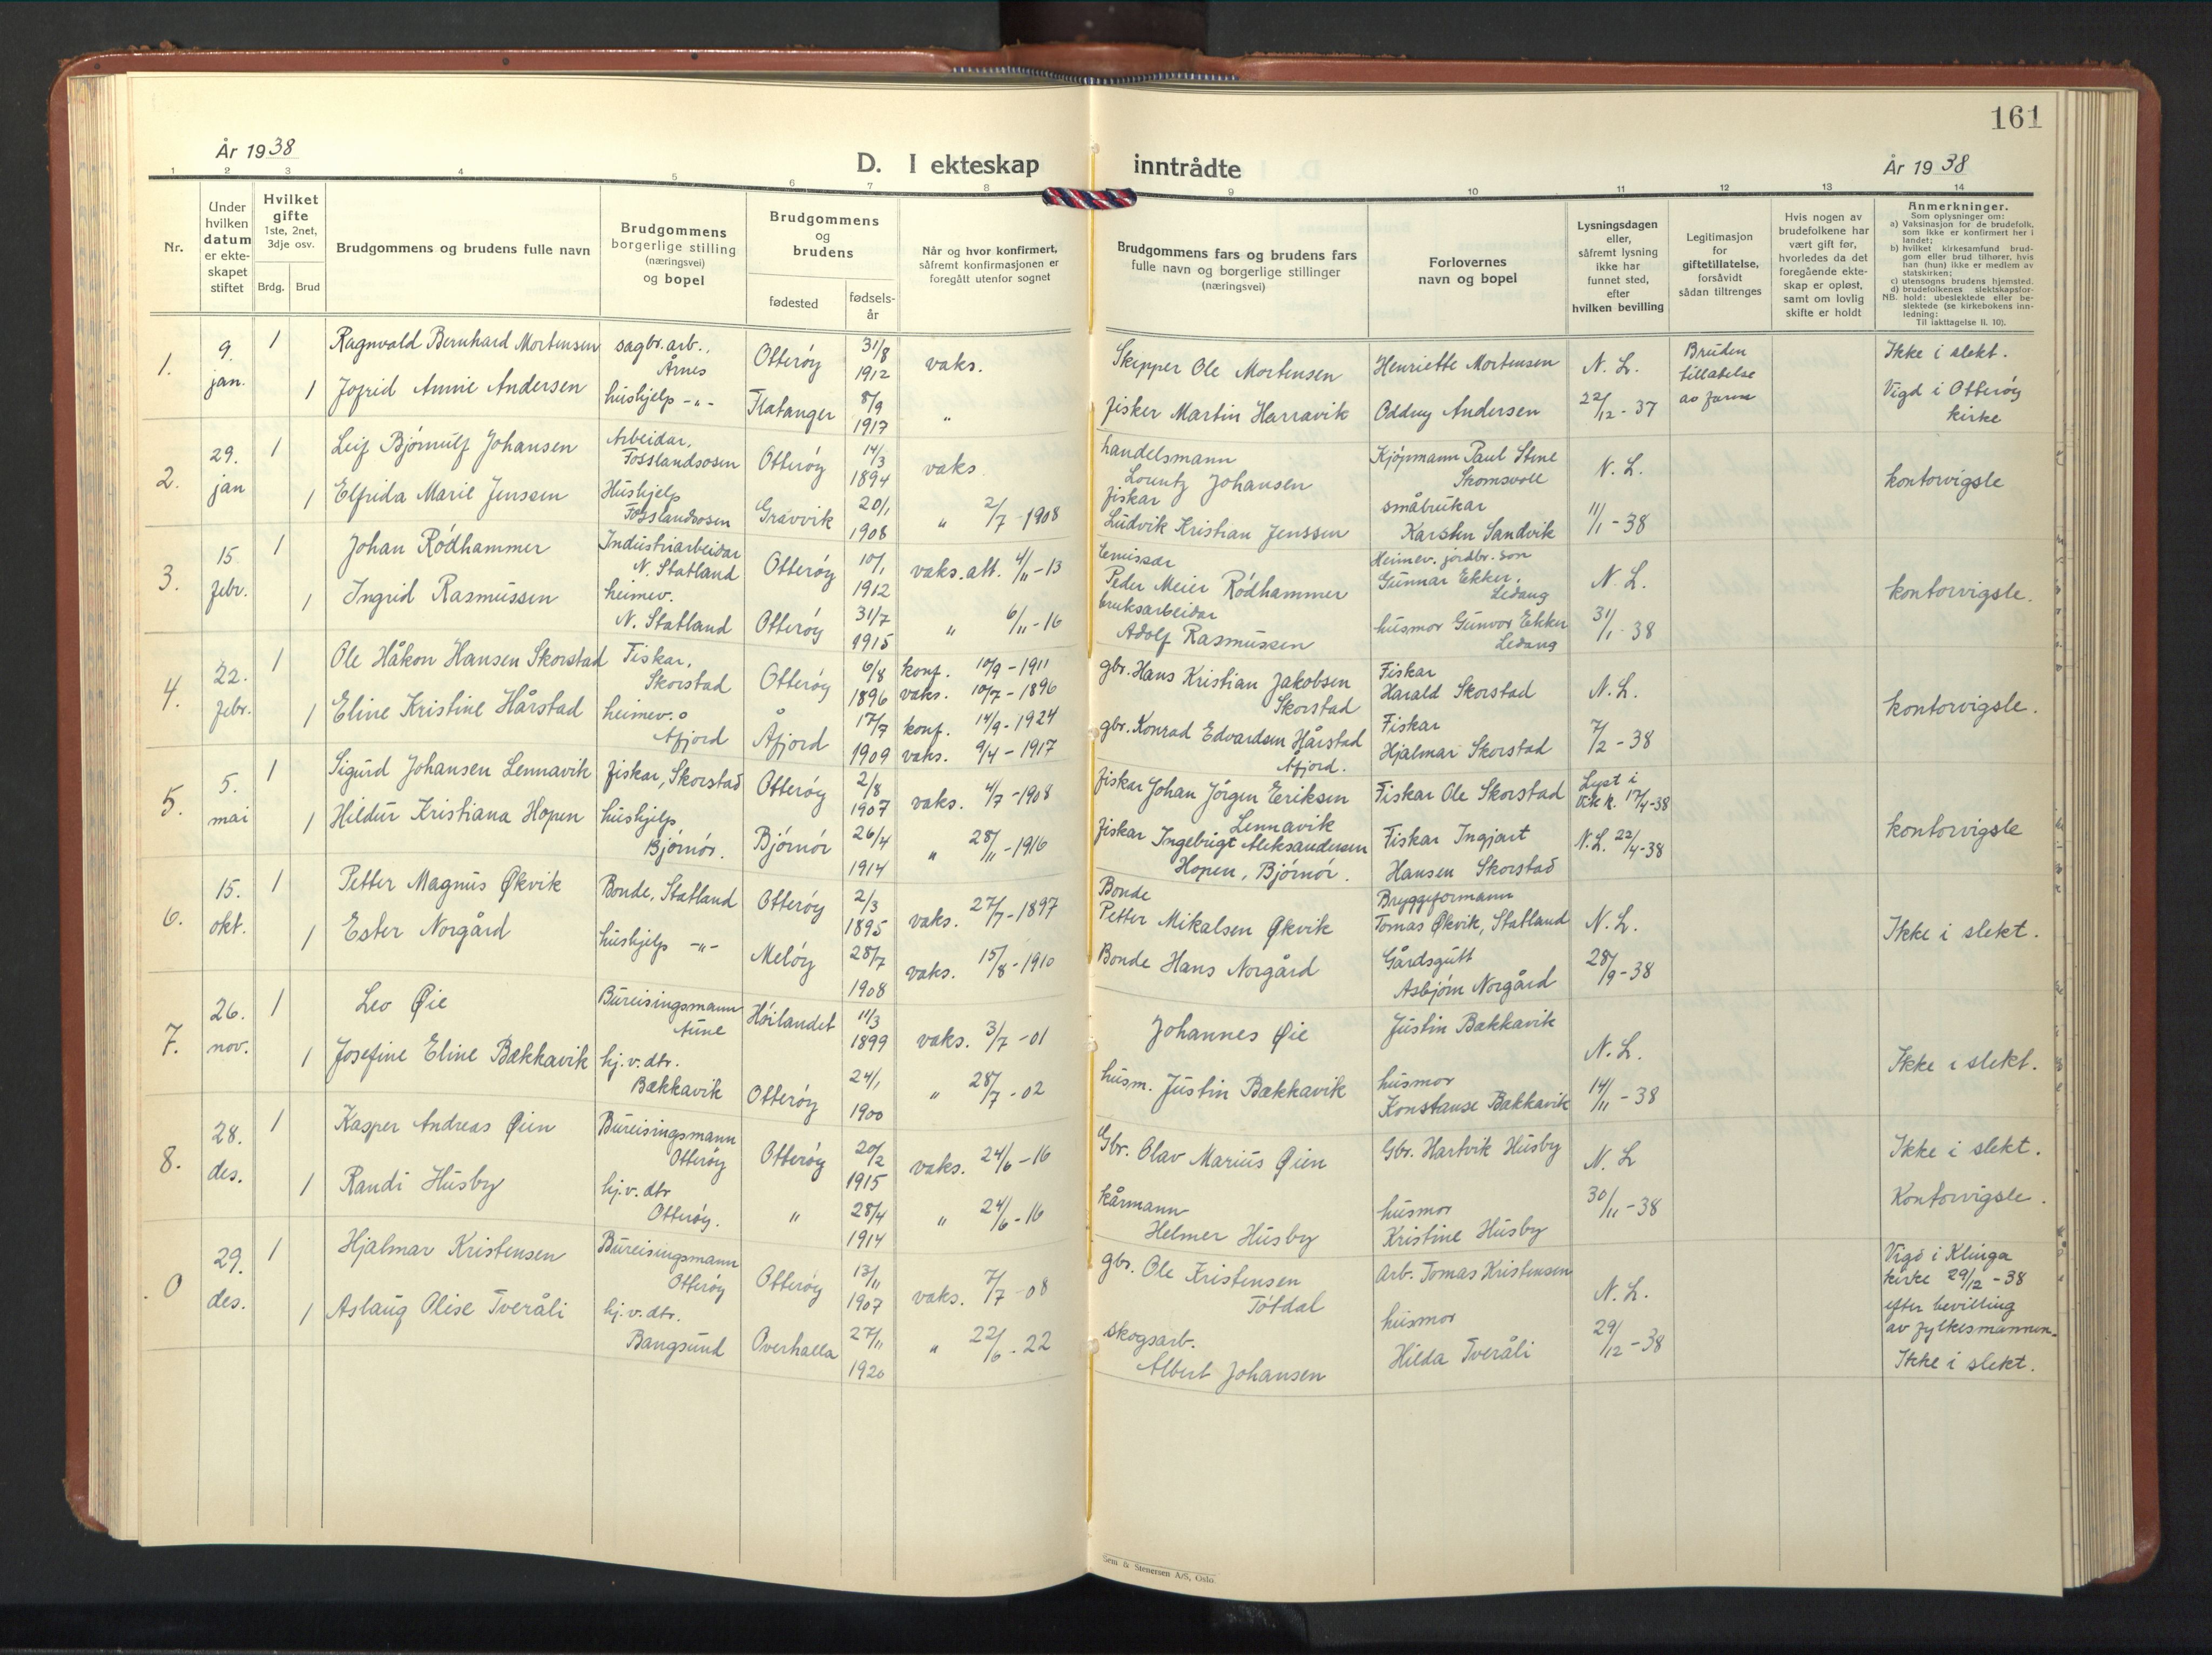 161
År 1938
D. I ekteskap inntrådte
År 1938
1 2 3 4 5 6 7 8 9 10 11 12 13 14
Nr.
Under hvilken datum er ekte-skapet stiftet
Hvilket gifte 1ste, 2net, 3dje osv.
Brdg. Brud
Brudgommens og brudens fulle navn
Brudgommens borgerlige stilling (næringsvei) og bopel
Brudgommens og brudens
fødested
fødsels-år
Når og hvor konfirmert, såfremt konfirmasjonen er foregått utenfor sognet
Brudgommens fars og brudens fars fulle navn og borgerlige stillinger (næringsvei)
Forlovernes navn og bopel
Lysningsdagen eller, såfremt lysning ikke har funnet sted, efter hvilken bevilling
Legitimasjon for giftetillatelse, forsåvidt sådan tiltrenges
Hvis nogen av brudefolkene har vært gift før, hvorledes da det foregående ekte-skap er opløst, samt om lovlig skifte er holdt
Anmerkninger.
Som oplysninger om:
a) Vaksinasjon for de brudefolk, som ikke er konfirmert her i landet;
b) hvilket kirkesamfund brud-gom eller brud tilhører, hvis han (hun) ikke er medlem av statskirken;
c) utensogns brudens hjemsted.
d) brudefolkenes slektskapsfor-hold: ubeslektede eller be-slektede (se kirkebokens inn-ledning:
NB. Til iakttagelse II. 10).
1. 9. jan. 1 Ragnvald Bernhard Mortensen sagbr.arb., Årnes Otterøy 31/8 1912 vaks. Skipper Ole Mortensen Henriette Mortensen N. L. Bruden tillatelse av faren Ikke i slekt.
1 Jofrid Annie Andersen hushjelp -"- Flatanger 8/9 1917 " fisker Martin Harravik Oddny Andersen 22/12-37 Vigd i Otterøy kirke
2. 29. jan 1 Leif Bjørnulf Johansen Arbeidar, Fosslandsosen Otterøy 14/3 1894 vaks handelsmann Lorentz Johansen Kjøpmann Paul Stene Skomsvoll N. L. kontorvigsle
1 Elfrida Marie Jenssen Hushjelp Fosslandsosen Gravvik 20/1 1908 " 2/7-1908 fiskar Ludvik Kristian Jenssen småbrukar Karsten Sandvik 11/1-38
3. 15. febr. 1 Johan Rødhammer Industriarbeidar N. Statland Otterøy 10/1 1912 vaks. att. 4/11-13 Emissær Peder Meier Rødhammer Heimev. jordbr. son Gunnar Ekker, Ledang N. L. kontorvigsle.
1 Ingrid Rasmussen heimev. N. Statland Otterøy 31/7 1915 " 6/11-16 bruksarbeidar Adolf Rasmussen husmor Gunvor Ekker Ledang 31/1-38
4. 22. febr. 1 Ole Håkon Hansen Skorstad Fiskar, Skorstad Otterøy 6/8 1896 konf. 10/9-1911 vaks. 10/7-1896 gbr. Hans Kristian Jakobsen Skorstad Fiskar Harald Skorstad N. L. kontorvigsle.
1 Eline Kristine Hårstad heimev. Åfjord Åfjord 17/7 1909 konf. 14/9-1924 vaks. 9/4-1917 gbr. Konrad Edvardsen Hårstad Åfjord. Fiskar Hjalmar Skorstad 7/2-38
5. 5. mai 1 Sigurd Johansen Lennavik fiskar, Skorstad Otterøy 2/8 1907 vaks. 4/7-1908 fiskar Johan Jørgen Eeriksen Lennavik Fiskar Ole Skorstad Lyst i 17/4-38 kontorvigsle
1 Hildur Kristiana Hopen hushjelp Bjørnør. Bjørnør 26/4 1914 " 28/11-1916 fiskar Ingebrigt Aleksandersen Hopen, Bjørnør. Fiskar Ingjart Hansen Skorstad N. L. 22/4-38
6. 15. okt. 1 Petter Magnus Økvik Bonde, Statland Otterøy 2/3 1895 vaks. 27/7-1897 Bonde Petter Mikalsen Økvik Bryggeformann Tomas Økvik, Statland N. L. Ikke i slekt.
1 Ester Norgård hushjelp -"- Meløy 28/7 1908 vaks. 15/8-1910 Bonde Hans Norgård Gårdsgutt Asbjørn Norgård 28/9-38
7. 26. nov. 1 Leo Øie Bureisingsmann Aune Høilandet 11/3 1899 vaks. 3/7-01 Johannes Øie Justin Bakkavik N. L. Ikke i slekt.
1 Josefine Eline Bakkavik hj.v.dtr. Bakkavik Otterøy 24/1 1900 " 28/7-02 husm. Justin Bakkavik husmor Konstanse Bakkavik 14/11-38
8. 28. des. 1 Kasper Andreas Øien Bureisingsmann Otterøy Otterøy 20/2 1915 vaks. 24/6-16 Gbr. Olav Marius Øien Gbr. Hartvik Husby N. L Ikke i slekt.
1 Randi Husby hj.v.dtr Otterøy. " 28/4 1914 " 24/6-16 kårmann Helmer Husby husmor Kristine Husby 30/11-38 Kontorvigsle.
0 29. des. 1 Hjalmar Kristensen Bureisingsmann Otterøy Otterøy 13/11 1907 vaks. 7/7-08 gbr. Ole Kristensen Tøtdal Arb. Tomas Kristensen N. L. Vigd i Klinga kirke 29/12-38 efter bevilling av fylkesmannen.
1 Aslaug Olise Tveråli hj.v.dtr. Bangsund Overhalla 27/11 1920 " 22/6-22 skogsarb. Albert Johansen husmor Hilda Tveråli 29/12-38 Ikke i slekt.
Sem & Stenersen A/S, Oslo